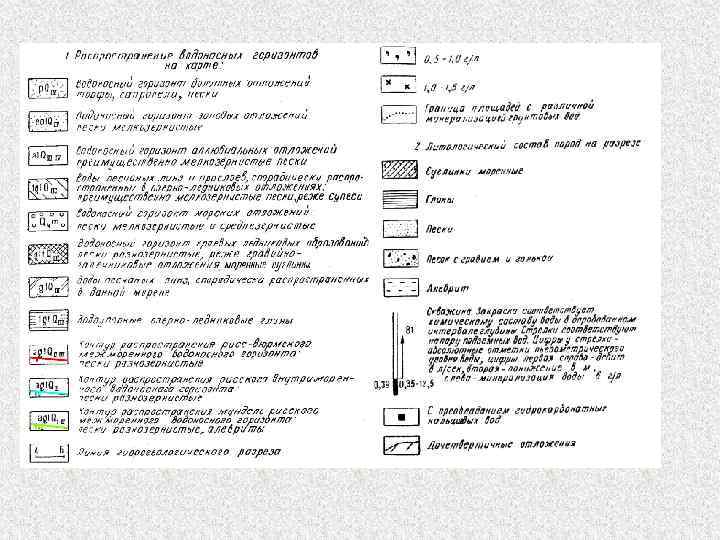 1. Распространение водоносных горизонтов
на карте:
Водоносный горизонт болотных отложений
торфы, сапропели, пески
Водоносный горизонт эоловых отложений
пески мелкозернистые
Водоносный горизонт аллювиальных отложений
преимущественно мелкозернистые пески
Воды песчаных линз и прослоев, спорадически распро-
страненных в озерно-ледниковых отложениях:
преимущественно мелкозернистые пески, реже супеси
Водоносный горизонт морских отложений
пески мелкозернистые и среднезернистые
Водоносный горизонт краевых ледниковых образований:
пески разнозернистые, реже гравийно-
галечниковые отложения моренные суглинки
Воды песчаных линз, спорадически распространенных
в данной морене
Водоупорные озерно-ледниковые глины
Контур распространения рисс-вюрмского
межморенного водоносного горизонта
пески разнозернистые
Контур распространения рисского внутриморен-
ного водоносного горизонта
пески разнозернистые
Контур распространения миндель рисского
межморенного водоносного горизонта
пески разнозернистые, алевриты
Линия гидрогеологического разреза
0,5-1,0 г/л
1,0-1,5 г/л
Граница площадей с различной
минерализацией грунтовых вод
2. Литологический состав пород на разрезе
Суглинки моренные
Глины
Пески
Песок с гравием и галькой
Алеврит
81
0,39
0,35-12,5
Скважина Закраска соответствует
химическому составу воды в опробованном
интервале глубины Стрелки соответствуют
напору подземных вод. Цифры у стрелки-
абсолютные отметки пьезометрического
уровня воды, цифры первая справа - дебит
в л/сек, вторая - понижение в м,
слева - минерализация воды в г/л
С преобладанием гидрокарбонатных
кальциевых вод.
Дочетвертичные отложения